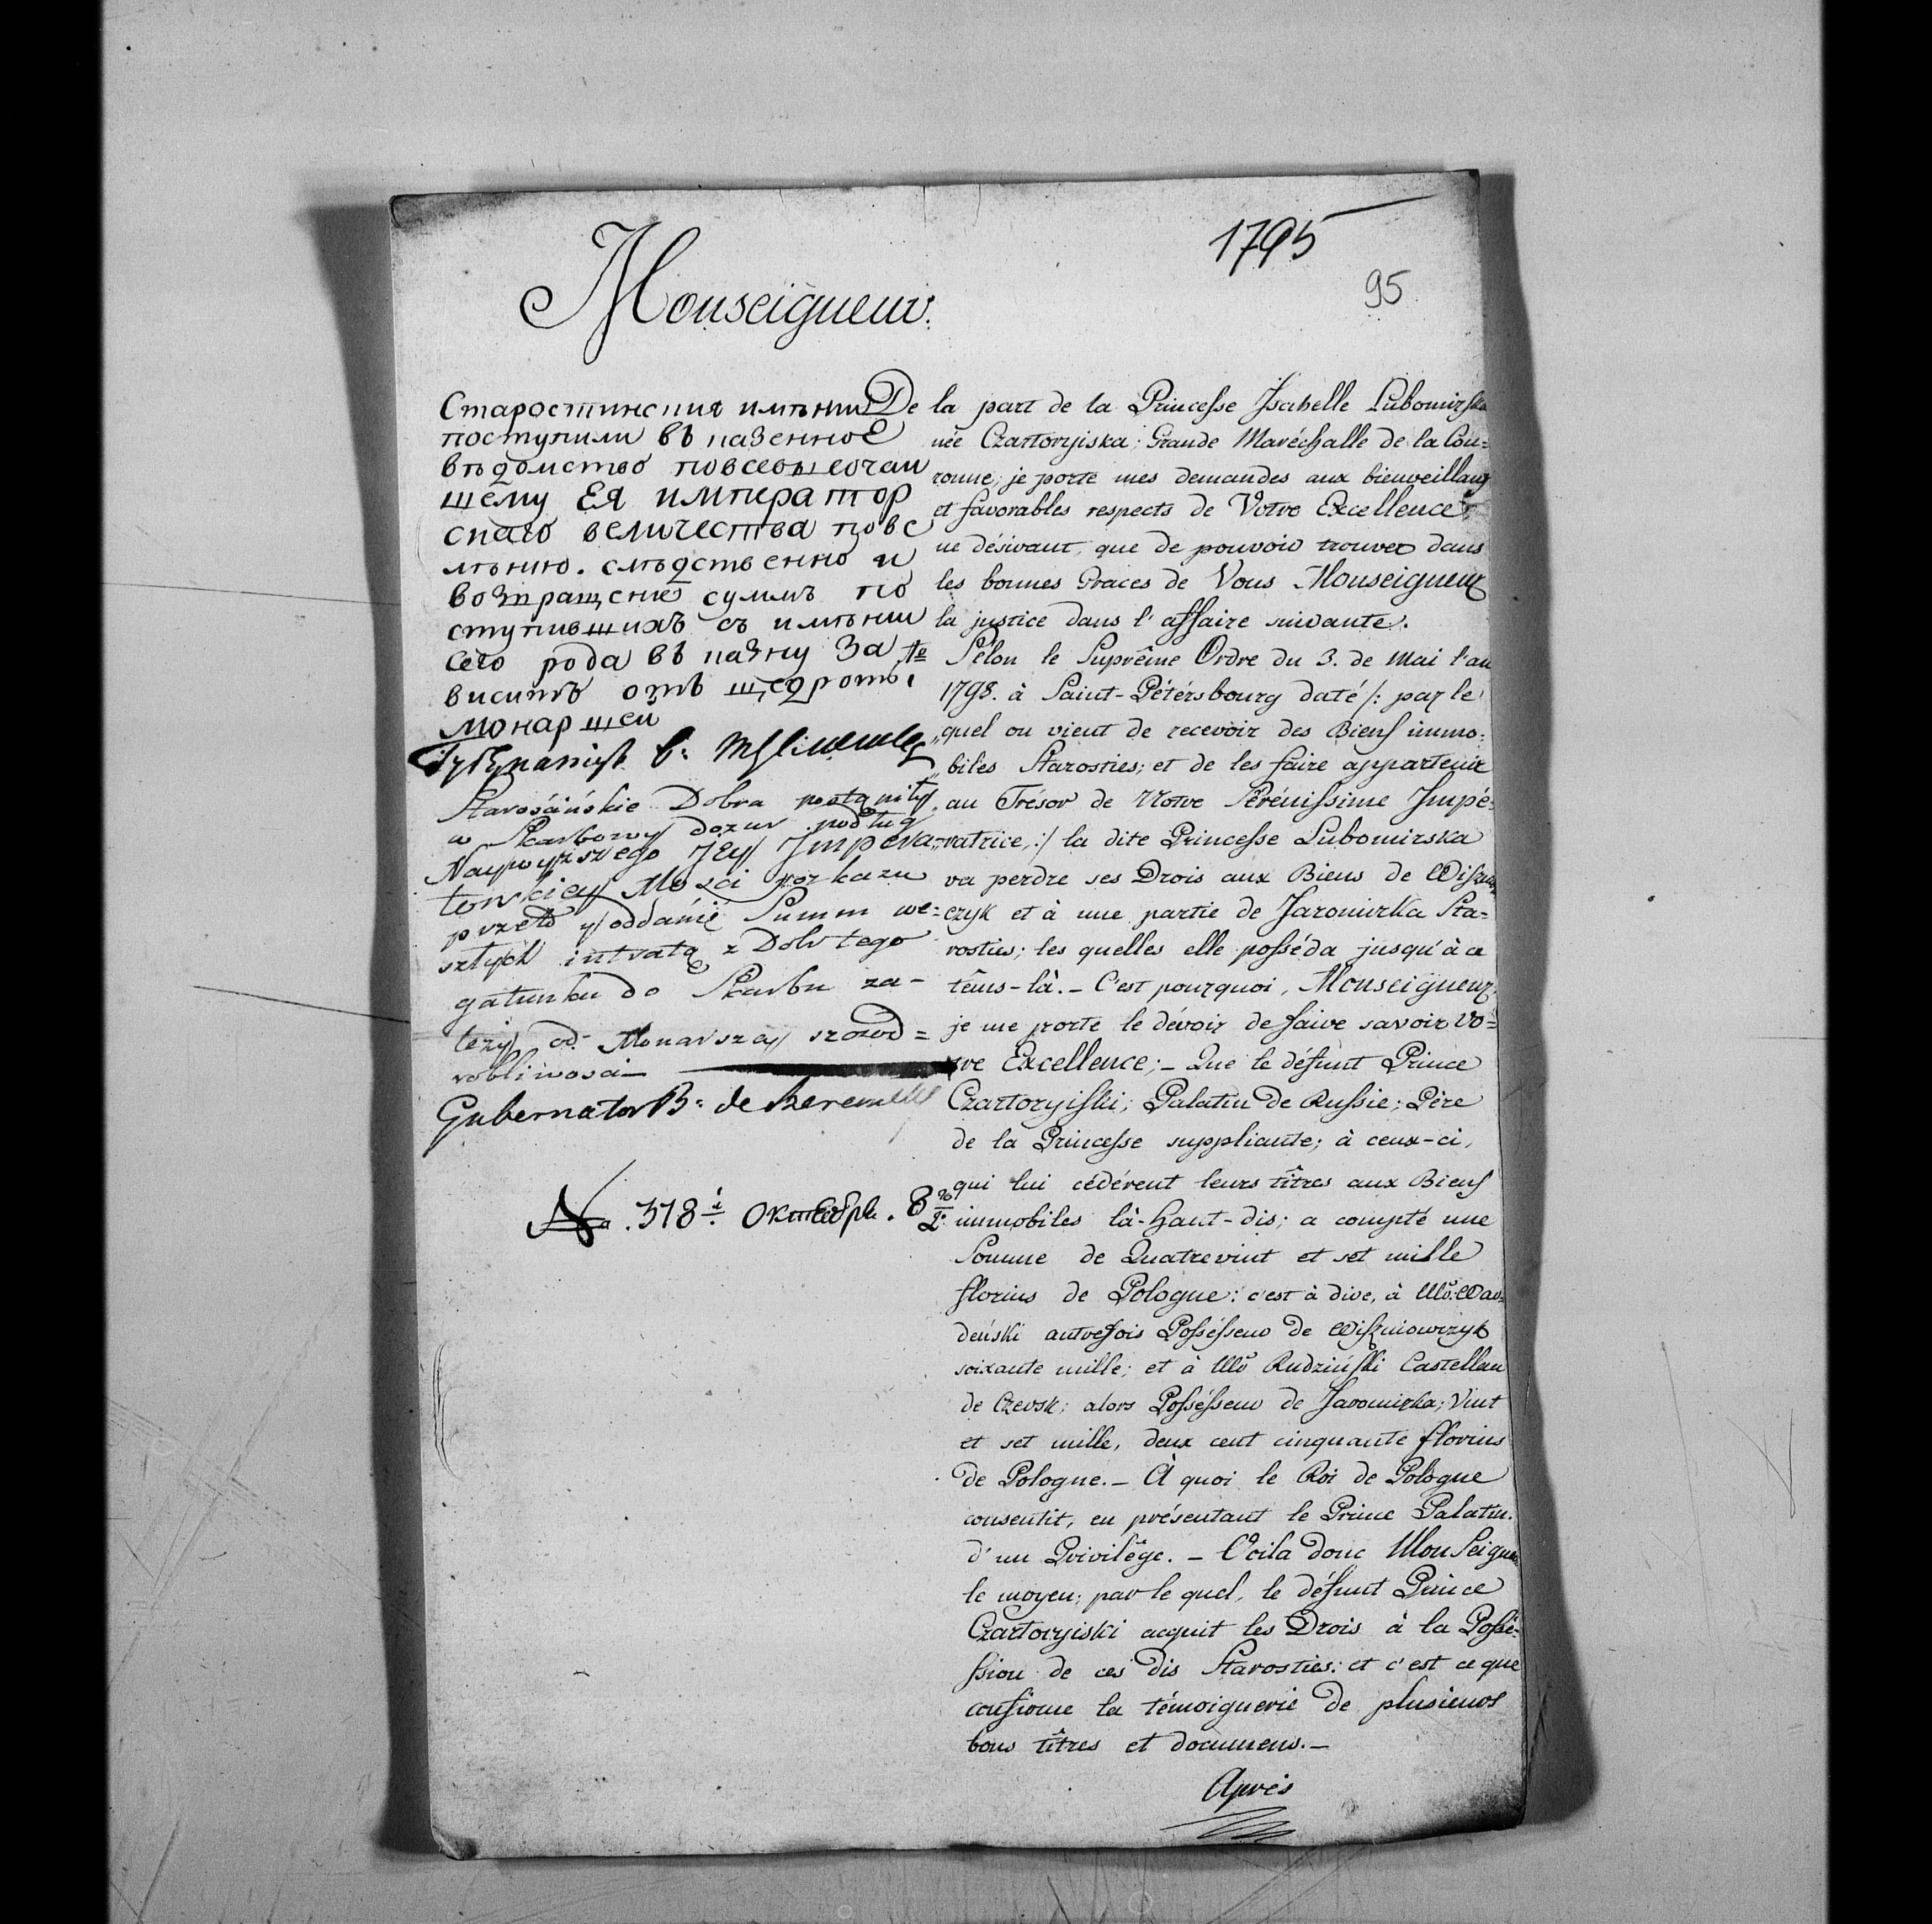 1795
95
Monseigneur.
Старостинския имѣнии
поступили въ казенное
вѣдомство по всевысочай
шему ЕЯ император
скаго величества пове
лѣнию. слѣдственно и
возвращение суммъ по
ступившихъ съ имѣнии
сего рода въ казну за
виситъ отъ щедроты
монаршей
Губернаторъ б:
Starościńskie Dobra postąpiły
w Skarbowy dozur podług
Naywyższego JEy Impera-
torskiey Mości rozkazu
przeto y oddanie Summ we=
szłych intratą z Dobr tego
gatunku do Skarbu za-
leży od Monarszey szczod=
robliwości—
Gubernator B: de
№. 378 Октебрь. 8
De la part de la Princesse Isabelle Lubomirska
née Czartoryiska; Grande Maréchalle de la Cou=
ronne, je porte mes demandes aux bienveillans
et favorables respects de Votre Excellence
ne désirant, que de pouvoir trouver dans
les bonnes Graces de Vous Monseigneur
la justice dans l'affaire suivante.
to Sélon le Suprême Ordre du 3. de Mai l'an
1798. à Saint-Pétérsbourg daté /: par le
„quel on vient de recevoir des Biens immo=
„biles Starosties; et de les faire appartenir
„au Trésor de Notre Sérénissime Impé=
„ratrice, :/ la dite Princesse Lubomirska
va perdre ses Drois aux Biens de
czyk et à une partie de Jaromirka Sta=
rosties; les quelles elle posséda jusqu'à ce
têms-là.- C'est pourquoi, Monseigneur,
je me porte le dévoir de faire savoir Vo=
tre Excellence;- Que le défunt Prince
Czartoryiski; Palatin de Russie; Père
de la Princesse suppliante; à ceux-ci,
qui lui cédérent leurs tîtres aux Biens
immobiles là-haut-dis; a compté une
Somme de Quatrevint et set mille
florins de Pologne: c'est à dire, à Mr.
deński autrefois Possésseur de Wiszniowczyk
soixante mille; et à Mr Rudziński Castellan
de Czersk; alors Possésseur de Jaromirka; Vint
et set mille, deux cent cinquante florins
de Pologne.- À quoi le Roi de Pologne
consentit, en présentant le Prince Palatin.
d'un Privilége.- Voila donc MonSeigneur
le moyen; par le quel, le défunt Prince
Czartoryiski acquit les Drois à la Possé-
ssion de ces dis Starosties: et c'est ce que
confirme la témoignerie de plusieurs
bons tîtres et documens.-
Aprés